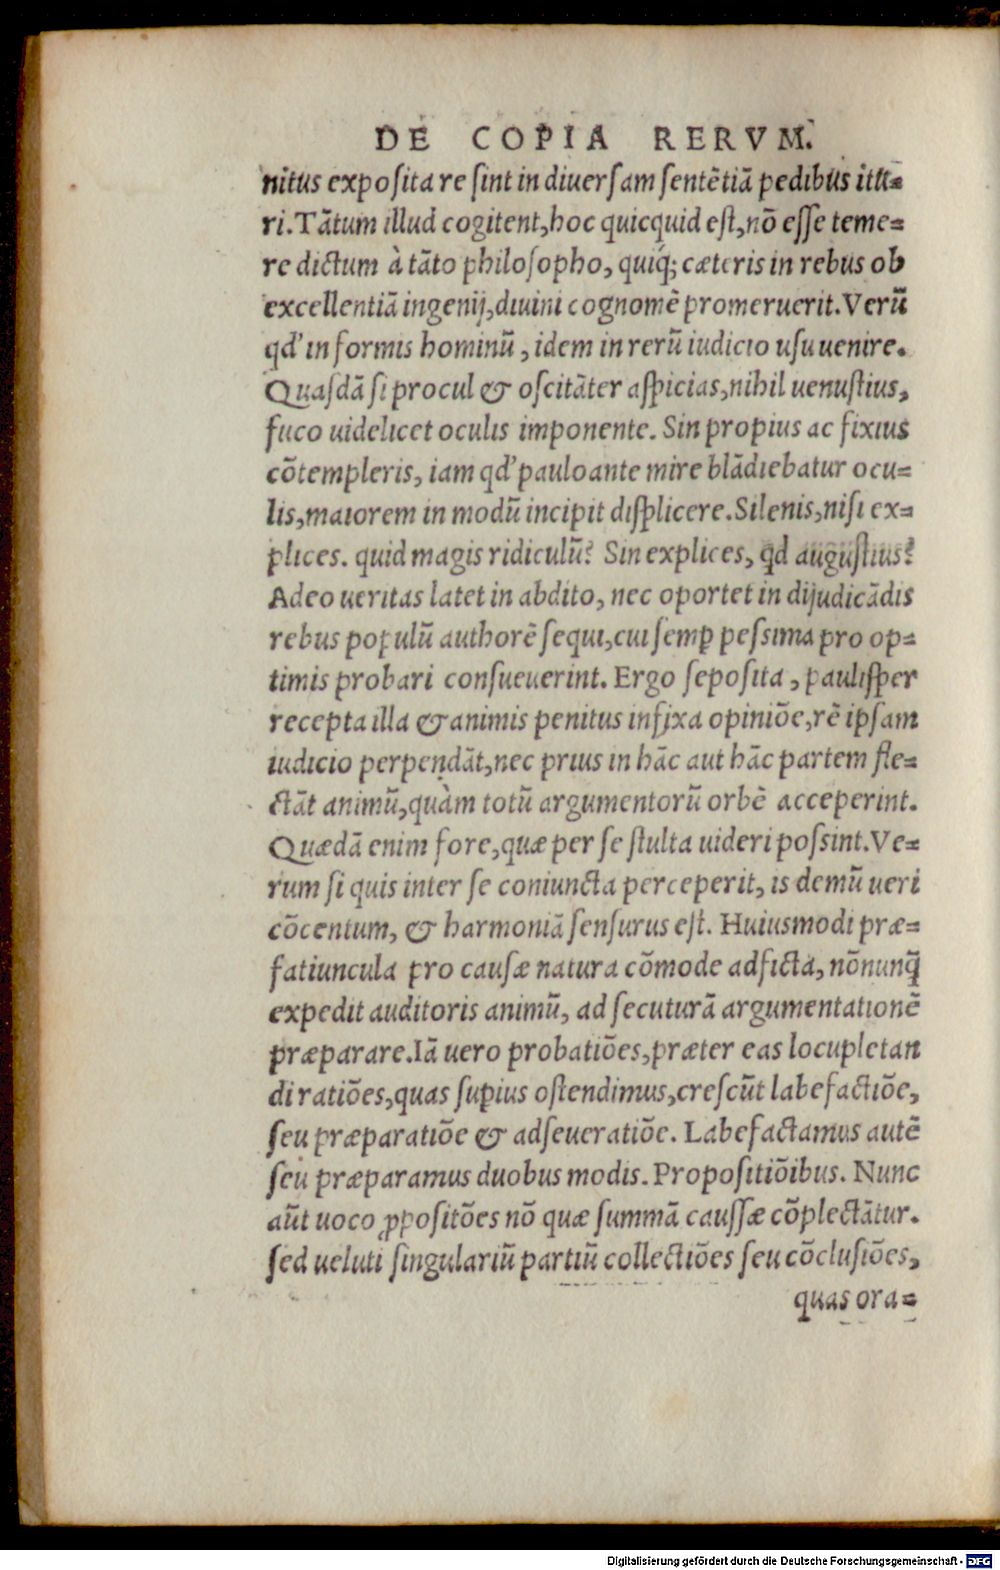 DE COPIA RERVM.
nitus exposita re sint in diuersam sentẽtiã pedibus itu=
ri. Tãtum illud cogitent, hoc quicquid est, nõ esse teme=
re dictum à tãto philosopho, quiq́; cæteris in rebus ob
excellentiã ingenij, diuini cognomẽ promeruerit. Verũ
qd' in formis hominũ, idem in rerũ iudicio usu uenire.
Quasdã si procul & oscitãter aspicias, nihil uenustius,
fuco uidelicet oculis imponente. Sin propius ac fixius
cõtempleris, iam qd' pauloante mire blãdiebatur ocu=
lis, maiorem in modũ incipit displicere. Silenis, nisi ex=
plices. quid magis ridiculũ? Sin explices, qd augustius?
Adeo ueritas latet in abdito, nec oportet in dijudicãdis
rebus populũ authorẽ sequi, cui semꝑ pessima pro op=
timis probari consueuerint. Ergo seposita, paulisper
recepta illa & animis penitus infixa opiniõe, rẽ ipsam
iudicio perpendãt, nec prius in hãc aut hãc partem fle=
ctãt animũ, quàm totũ argumentorũ orbẽ acceperint.
Quædã enim fore, quæ per se stulta uideri possint. Ve=
rum si quis inter se coniuncta perceperit, is demũ ueri
cõcentum, & harmoniã sensurus est. Huiusmodi præ=
fatiuncula pro causæ natura cõmode adficta, nõnunq̃
expedit auditoris animũ, ad secuturã argumentationẽ
præparare. Iã uero probatiões, præter eas locupletan
di ratiões, quas suꝑius ostendimus, crescũt labefactiõe,
seu præparatiõe & adseueratiõe. Labefactamus autẽ
seu præparamus duobus modis. Propositiõibus. Nunc
aũt uoco ꝓpositões nõ quæ summã caussæ cõplectãtur.
sed ueluti singulariũ partiũ collectiões seu cõclusiões,
quas ora=
Digitalisierung gefördert durch die Deutsche Forschungsgemeinschaft - DFG